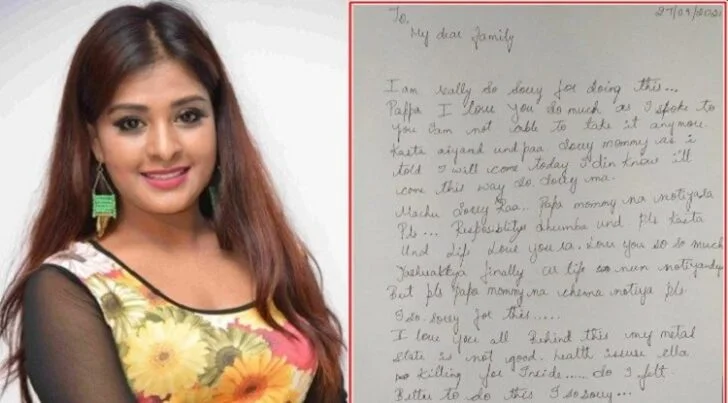 To,
27/09/2021
My dear family
I am really so sorry for doing this...
Pappa I love you so much as I spoke to
you I am not able to take it anymore.
Kasta aiyand und paa Sorry mommy as i
told I will come today I din know i'll
come this way so sorry ma.
Machu Sorry Raa.. Papa mommy na notiyala
Pls... Resposiblitys dhumba und pls kasta
Und Life Love you ra. Love you so so much
finally life nun
But pls Papa mommy na chenna notiya pls
I so. Sorry for this.....
I love you all Behind this my metal
State is not good. health issuse ella
Killing for Inside..... So I felt
Better to do this I so sorry...